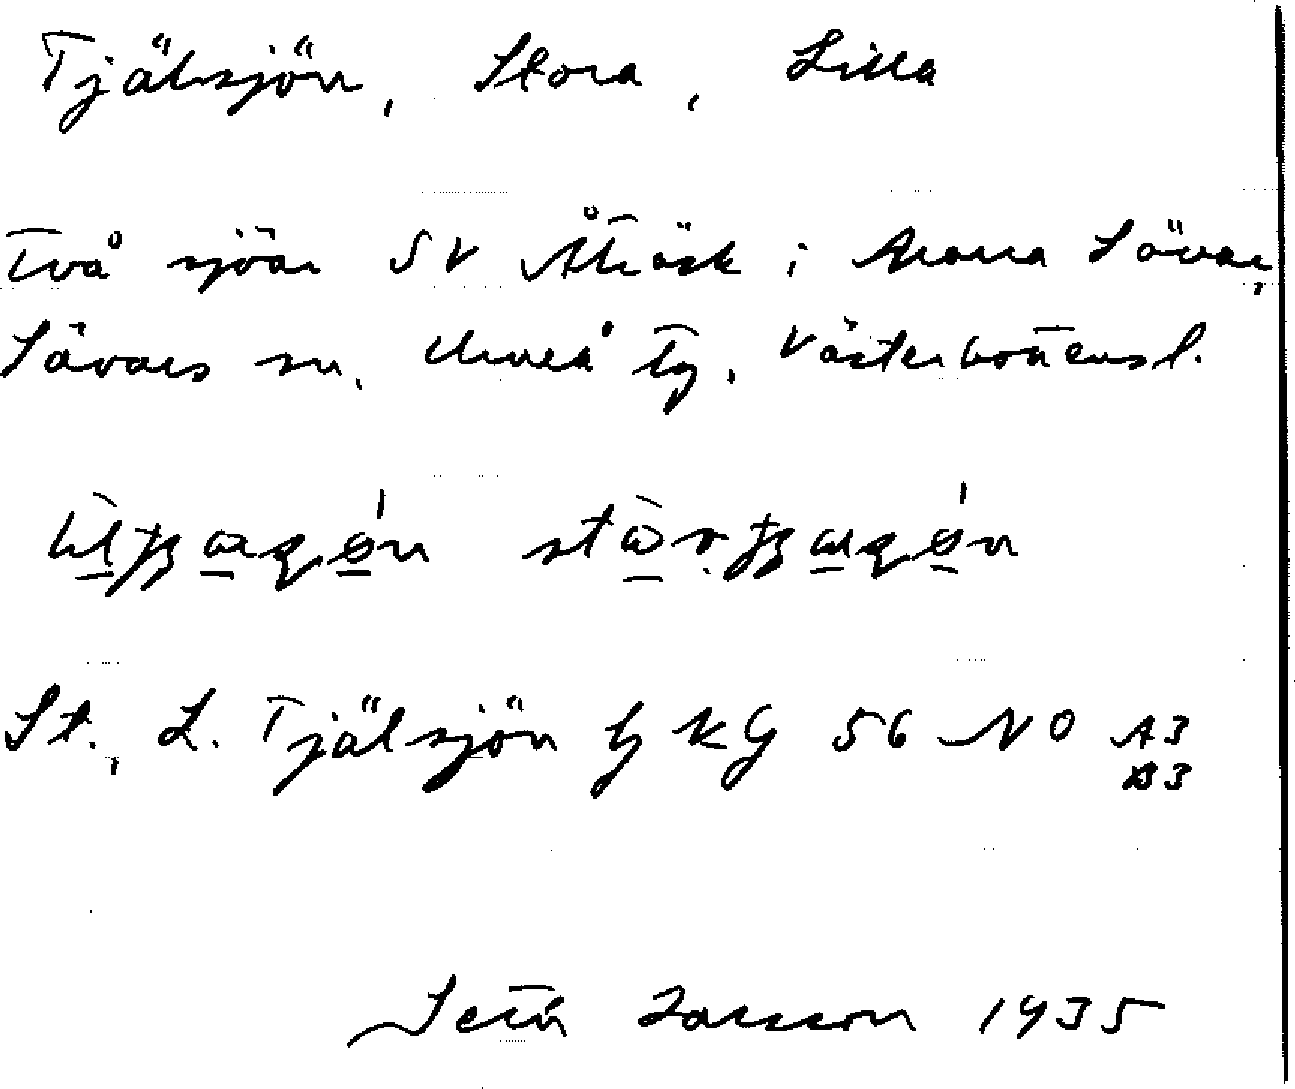 Tjälsjön, Stora, Lilla
Två sjöar SV Åträsk i Norra Sävar,
Sävars sn. Umeå tg. Västerbottensl.
St., L. Tjälsjön hj KG 56 NO A3
B3
Setå Larsson 1935